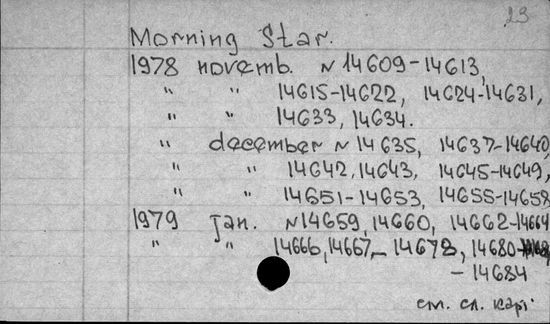 23
Morning Star.
1978 novemb. N 14609-14613,
" " 14615-14622, 14624-14631,
" " 14633, 14634.
" december N 14635, 14637-14640,
" " 14642, 14643, 14645-14649,
" " 14651-14653, 14655-14658
1979 jan. N 14659, 14660, 14662-14664
" " 14666, 14667 - 14678, 14680-
- 14684
см. сл. карт